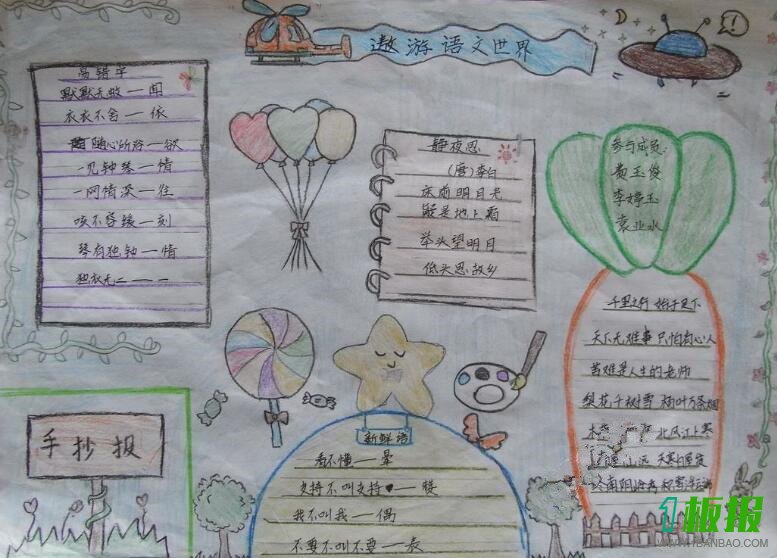 遨游语文世界
易错字
默默无蚊一闻
衣衣不舍一依
随心所浴一欲
一见钟琴一情
一网情深一往
咳不容缓一刻
琴有独钟一情
独衣无二一一
静夜思
(唐)李白
床前明月光
疑是地上霜
举头望明月
低头思故乡
参与成员:
黄玉俊
李婷玉
袁业水
千里之行 始于足下
天下无难事 只怕有心人
苦难是人生的老师
梨花千树雪 杨叶万条烟
北风江上寒
手抄报
新鲜语
看不懂一晕
支持不叫支持♥一赞
我不叫我一偶
不要不叫不要一表
1板报
WWW.1BANBAO.COM